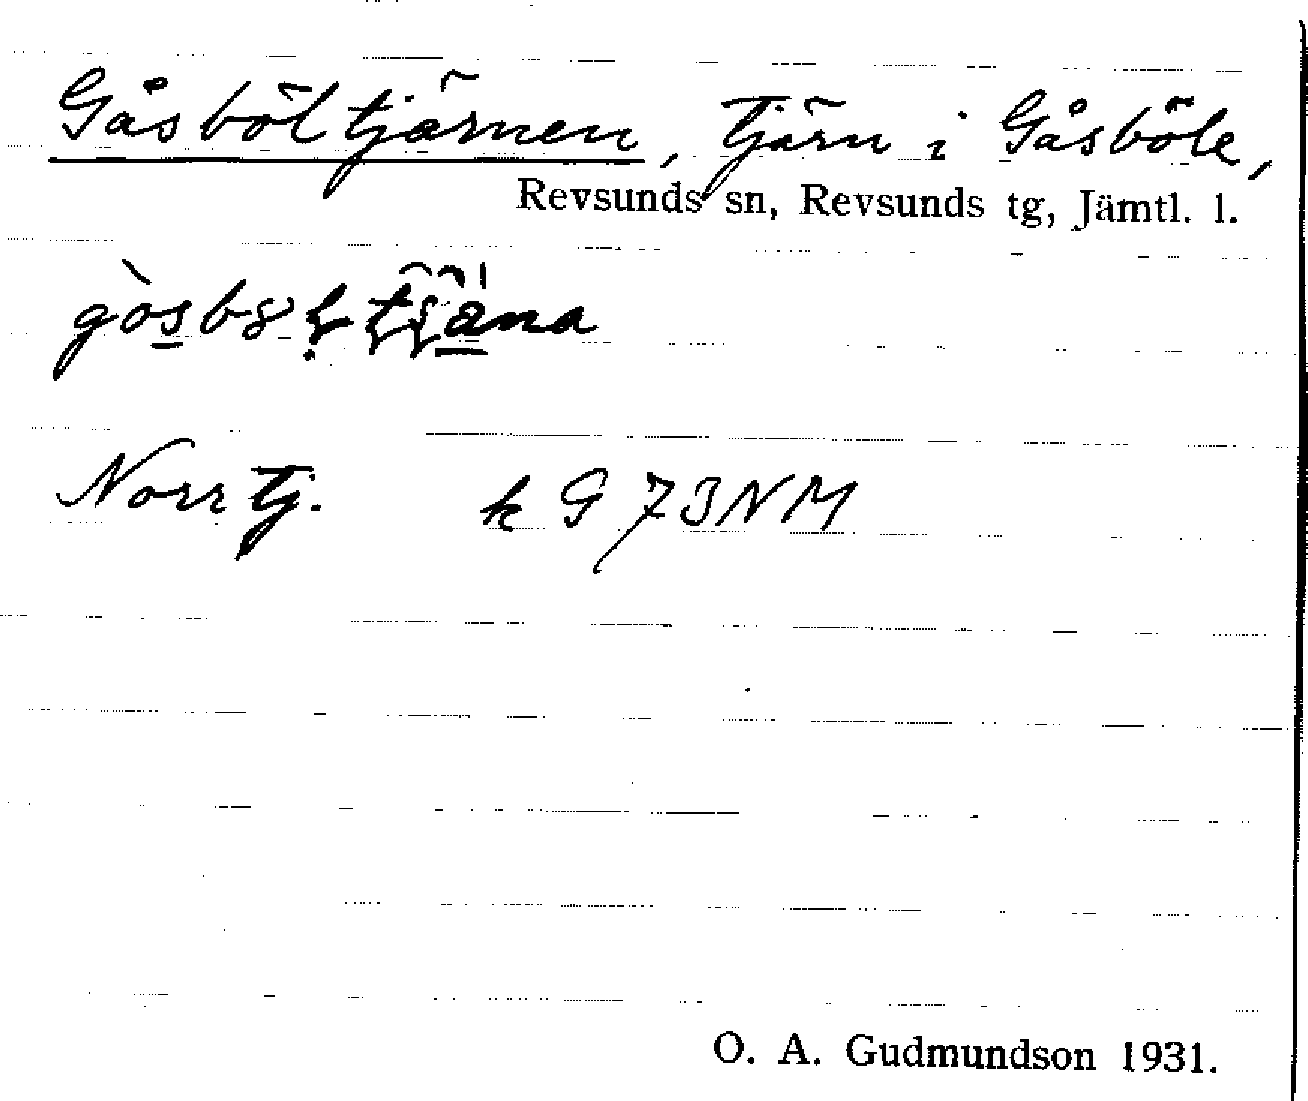 Gåsböltjärnen, tjärn i Gåsböle,
Revsunds sn, Revsunds tg, Jämtl. l.
Norrtj. k G 73NM
O. A. Gudmundson 1931.